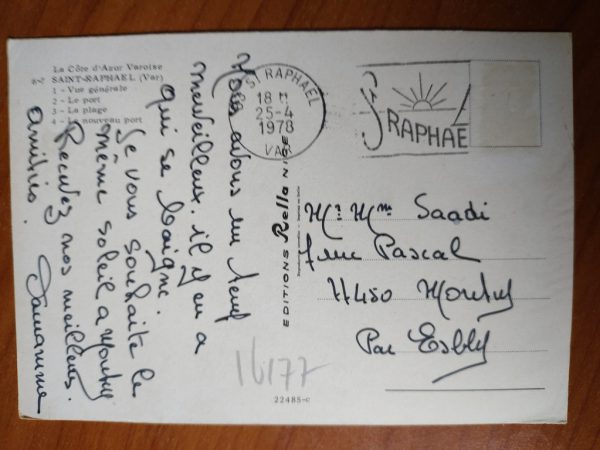 La Côte d'Azur Varoise
SAINT-RAPHAEL (Var)
1 - Vue générale
2 - Le port
3 - La plage
4 - Le nouveau port
Nous avons un temps
merveilleux. il y en a
qui se baigne.
Je vous souhaite le
même soleil a Montry
Recevez nos meilleures
amitiés.
ST RAPHAEL
18 H
25-4
1978
VAR
ST
RAPHAË
EDITIONS Rella NICE
Mr Mme Saadi
7 rue Pascal
77450 Montry
Par Esbly
16177
22485-c